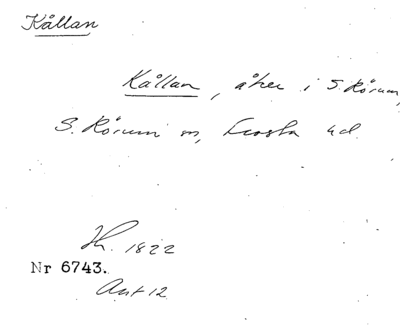 Kållan
Kållan, åker i S. Rörum,
S. Rörum sn, Frosta hd.
Hr. 1822
Nr 6743.
Akt 12